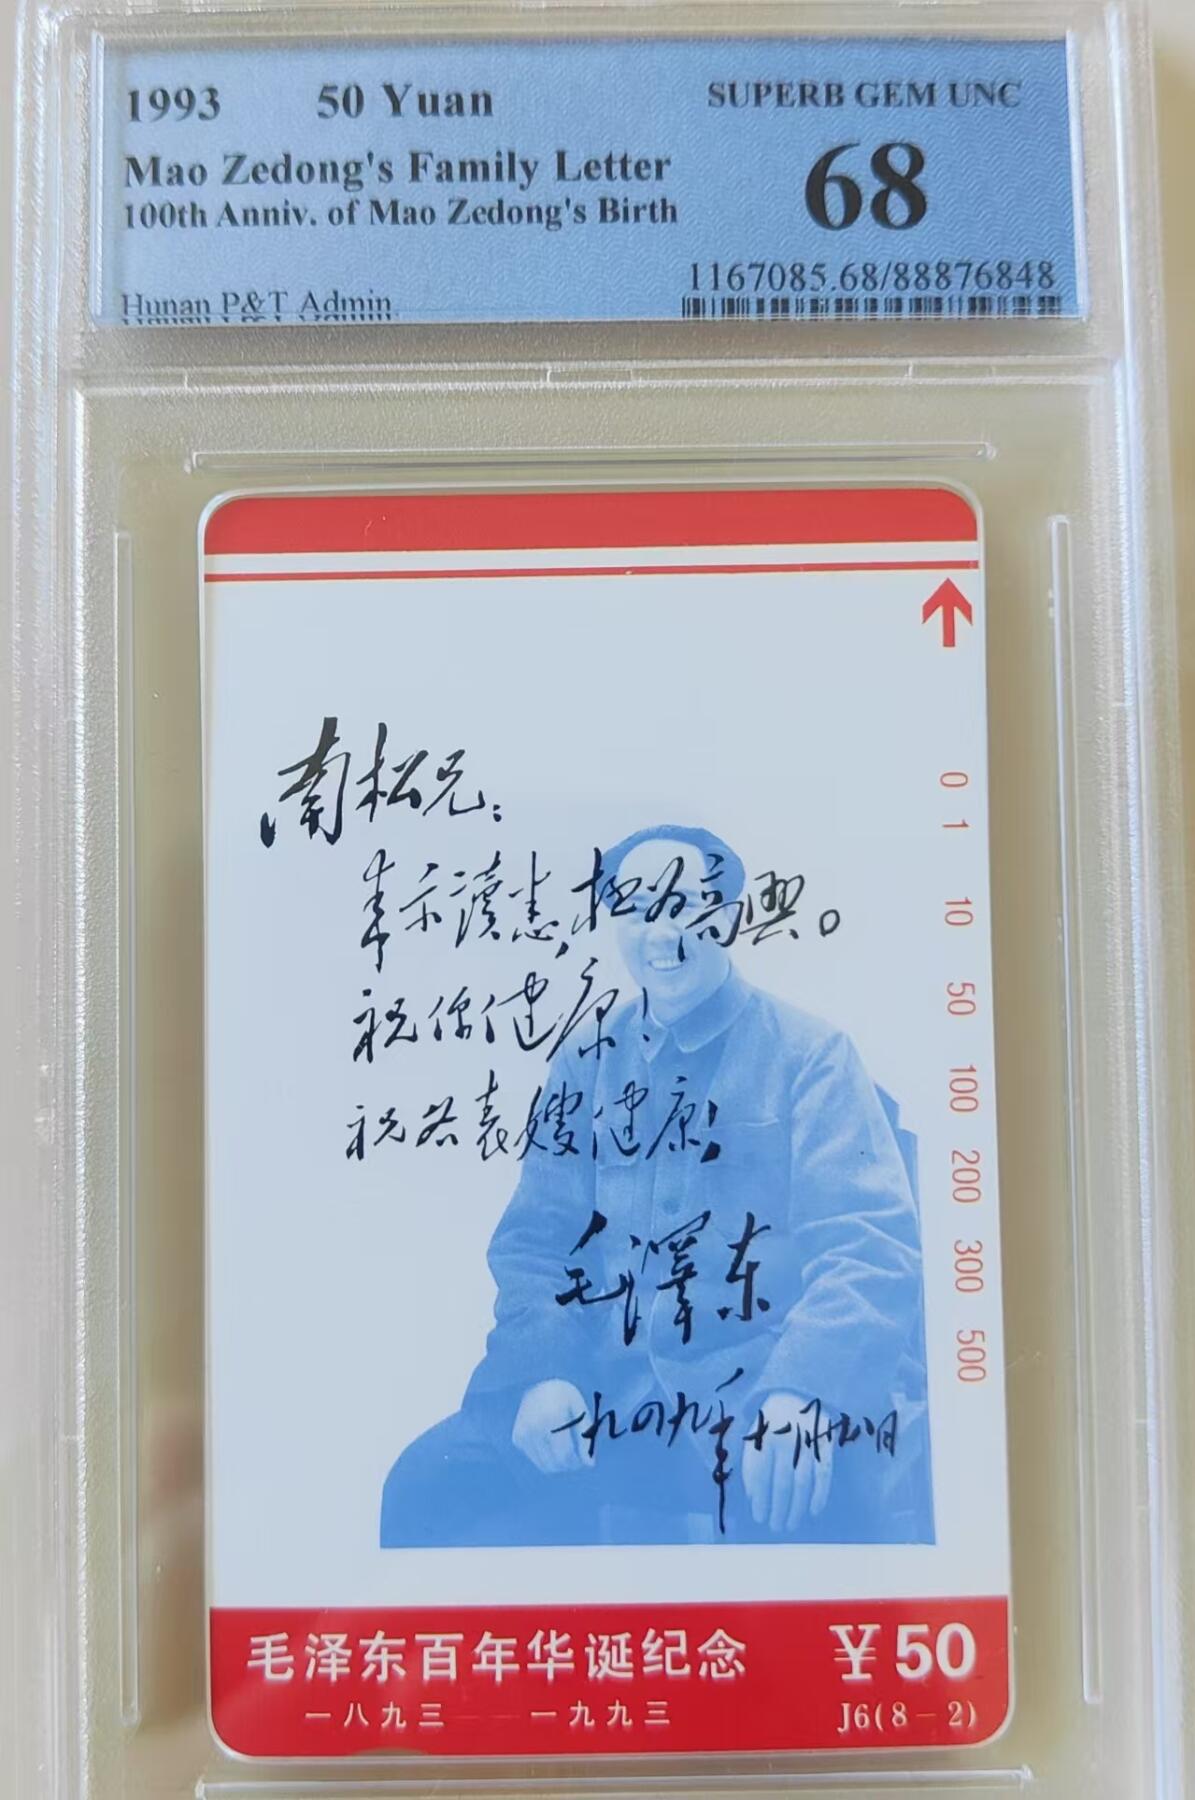 1993 50 Yuan
SUPERB GEM UNC
68
Mao Zedong's Family Letter
100th Anniv. of Mao Zedong's Birth
1167085.68/88876848
Hunan P&T Admin
南松兄:
示讀悉,極为高興。
祝你健康!
祝各表嫂健康!
毛澤东
一九四九年十一月廿八日
0 1 10 50 100 200 300 500
毛泽东百年华诞纪念 ¥50
一八九三——一九九三 J6(8-2)